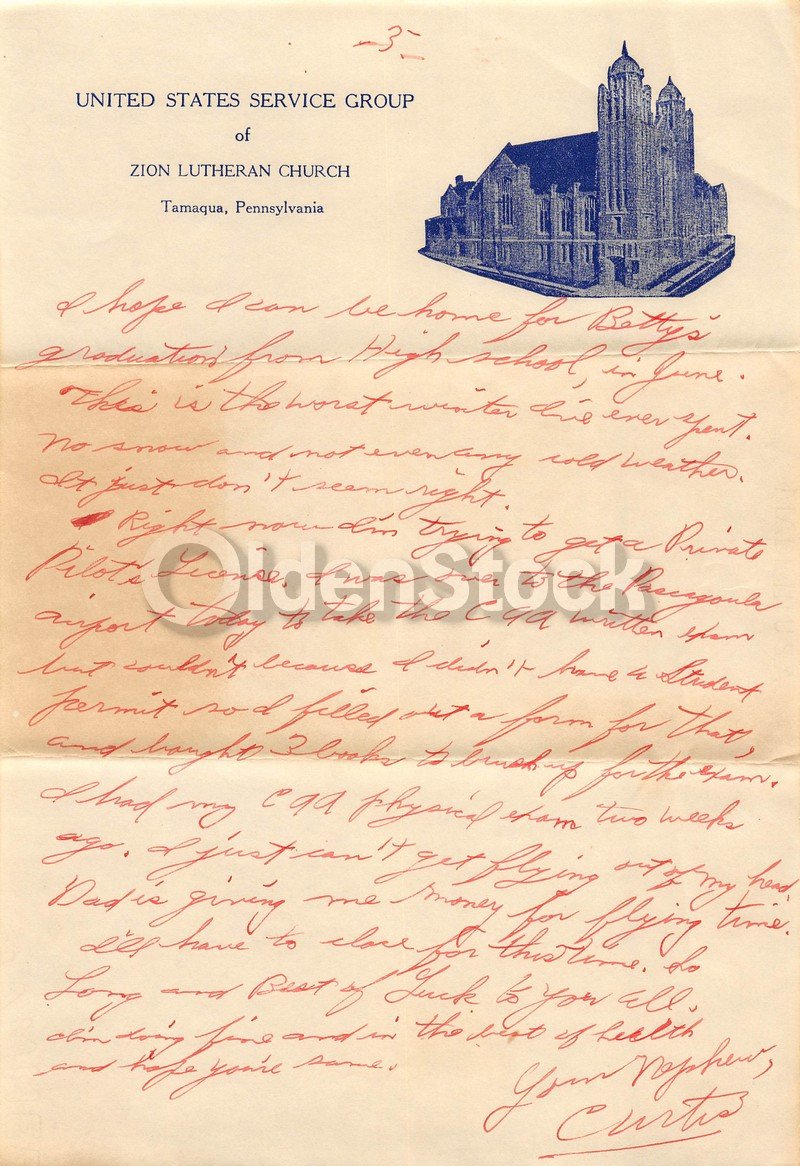 -3-
UNITED STATES SERVICE GROUP
of
ZION LUTHERAN CHURCH
Tamaqua, Pennsylvania
I hope I can be home for Betty's
graduation from High school, in June.
This is the worst winter I've ever spent.
No snow and not even any cold weather.
It just don't seem right.
Right now I'm trying to get a Private
Pilot's License. I was over to the Pascagoula
airport today to take the CAA written exam
but couldn't because I didn't have a Student
permit so I filled out a form for that,
and bought 3 books to brush up for the exam.
I had my CAA physical exam two weeks
ago. I just can't get flying out of my head.
Dad is giving me money for flying time.
I'll have to close for this time. So
Long and Best of Luck to you all.
I'm doing fine and in the best of health
and hope you're same.
Your Nephew,
Curtis
OldenStock